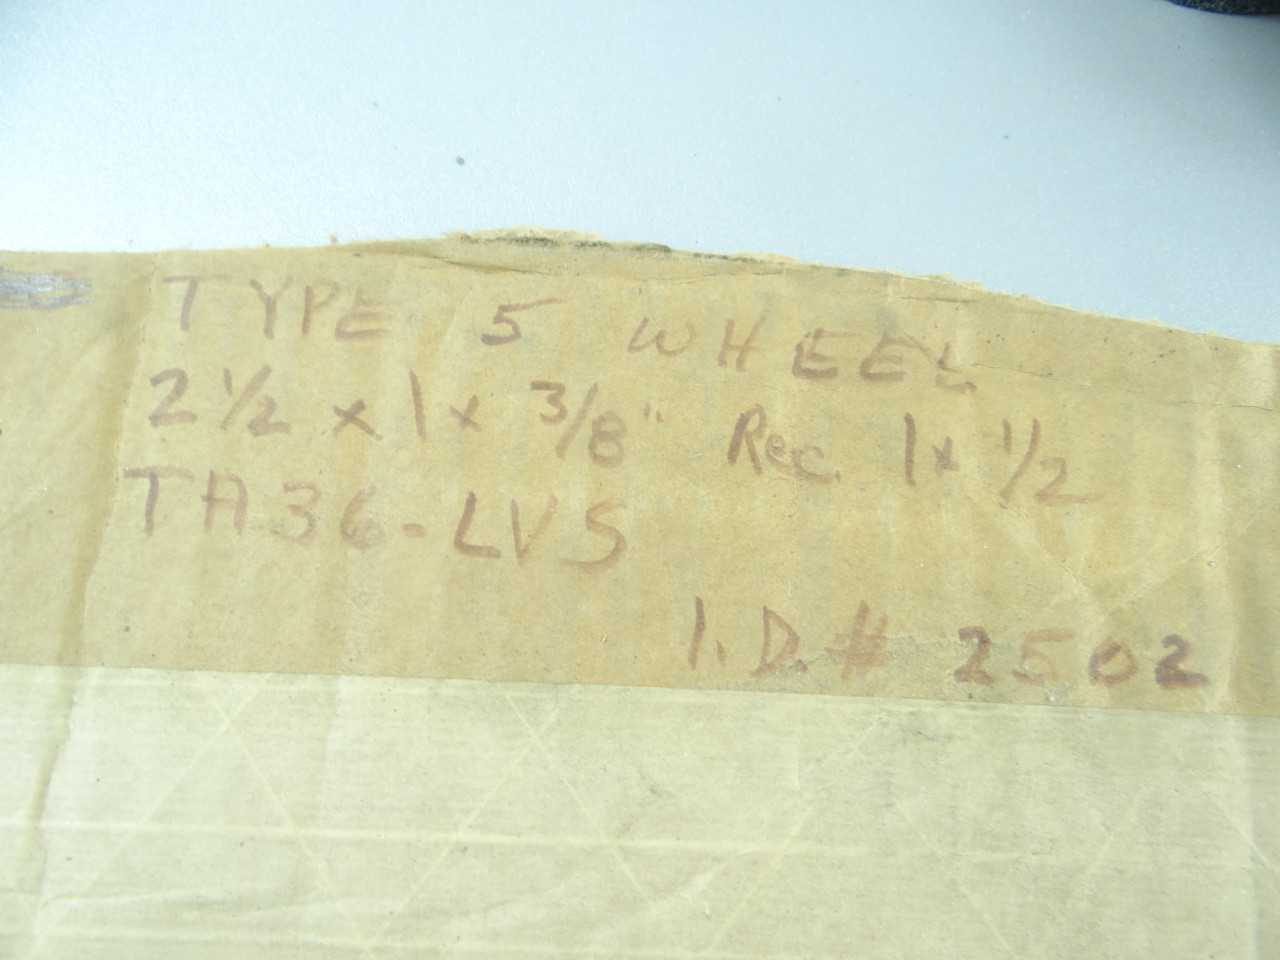 TYPE 5 WHEEL
2 1/2 x 1 x 3/8" Rec. 1 x 1/2
TA36-LVS
I.D. # 2502